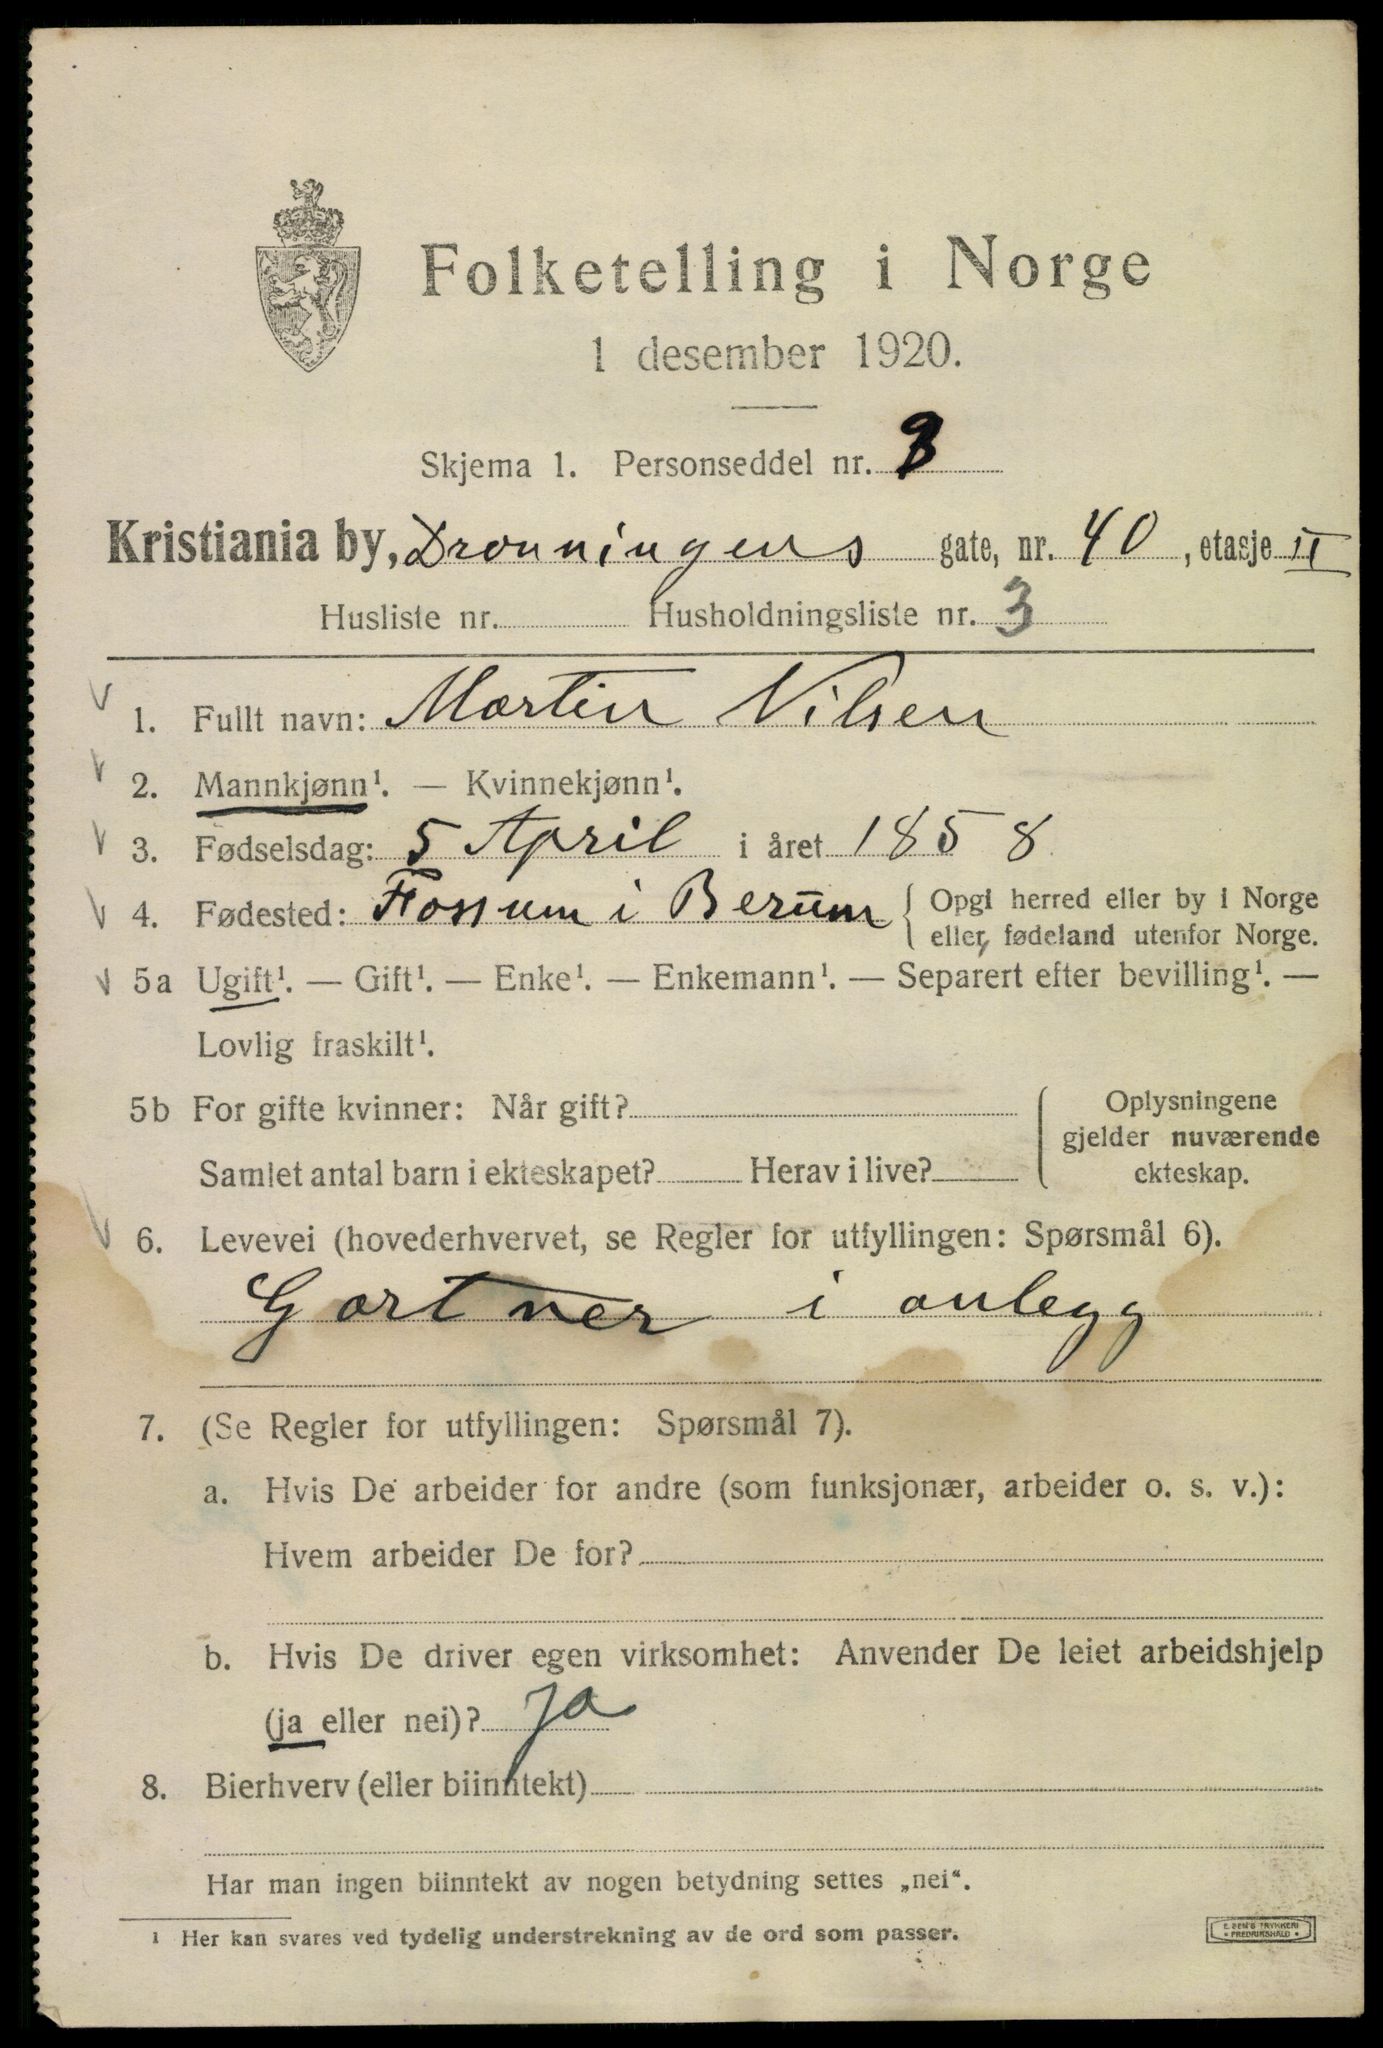 Folketelling i Norge
1 desember 1920.
Skjema 1. Personseddel nr.
Kristiania by, Dronningens gate, nr. 40, etasje II
Husliste nr. Husholdningsliste nr. 3
1. Fullt navn: Martin Nilsen
2. Mannkjønn¹. — Kvinnekjønn¹.
3. Fødselsdag: 5 April i året 1858
4. Fødested: Fossum i Berum { Opgi herred eller by i Norge
eller fødeland utenfor Norge.
5a Ugift¹. — Gift¹. — Enke¹. — Enkemann¹. — Separert efter bevilling¹. —
Lovlig fraskilt¹.
5b For gifte kvinner: Når gift? { Oplysningene
gjelder nuværende
Samlet antal barn i ekteskapet? Herav i live? ekteskap.
6. Levevei (hovederhvervet, se Regler for utfyllingen: Spørsmål 6).
Gartner i anlegg
7. (Se Regler for utfyllingen: Spørsmål 7).
a. Hvis De arbeider for andre (som funksjonær, arbeider o. s. v.):
Hvem arbeider De for?
b. Hvis De driver egen virksomhet: Anvender De leiet arbeidshjelp
(ja eller nei)? ja
8. Bierhverv (eller biinntekt)
Har man ingen biinntekt av nogen betydning settes „nei“.
¹ Her kan svares ved tydelig understrekning av de ord som passer.
E. SEM'S TRYKKERI
• FREDRIKSHALD •